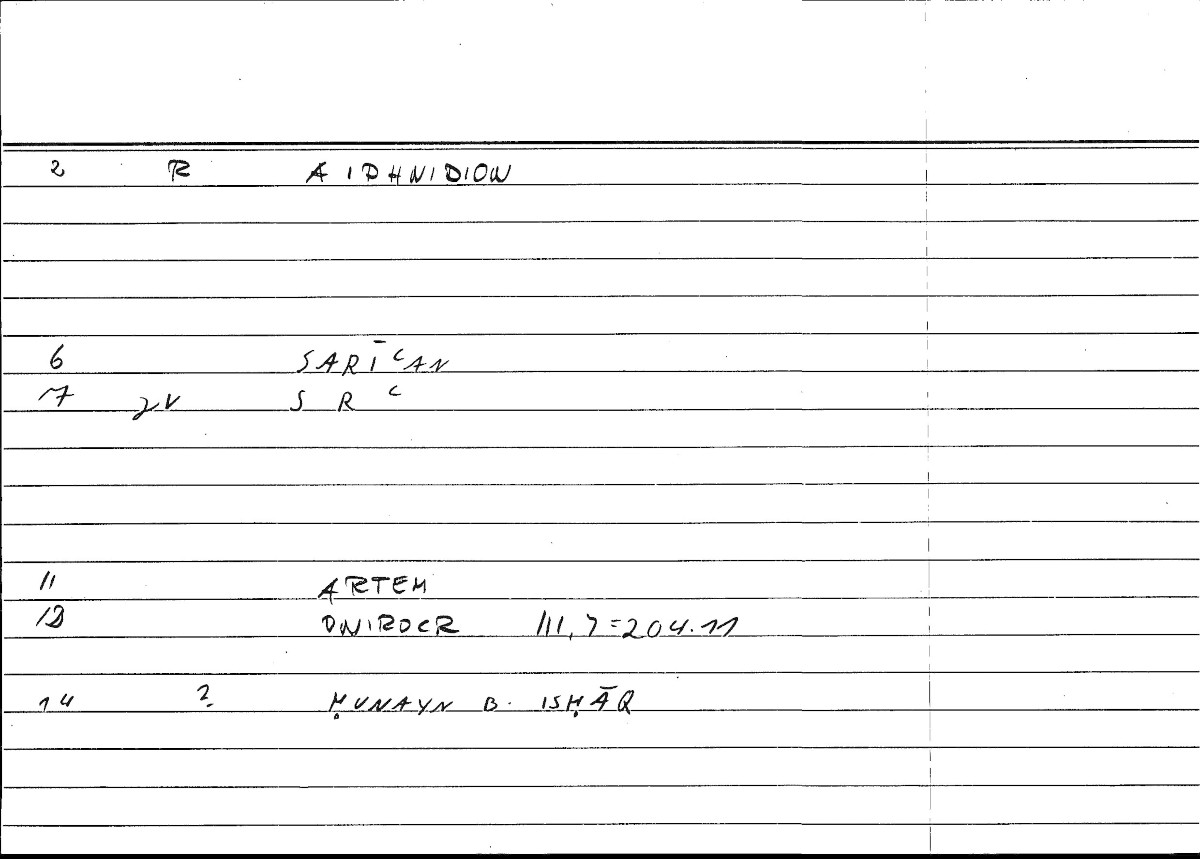 2 R AIPHNIDION
6 SARĪʿAN
7 2V S R ʿ
11 ARTEM
12 ONIROCR III, 7=204.11
14 ? ḤUNAYN B. ISḤĀQ